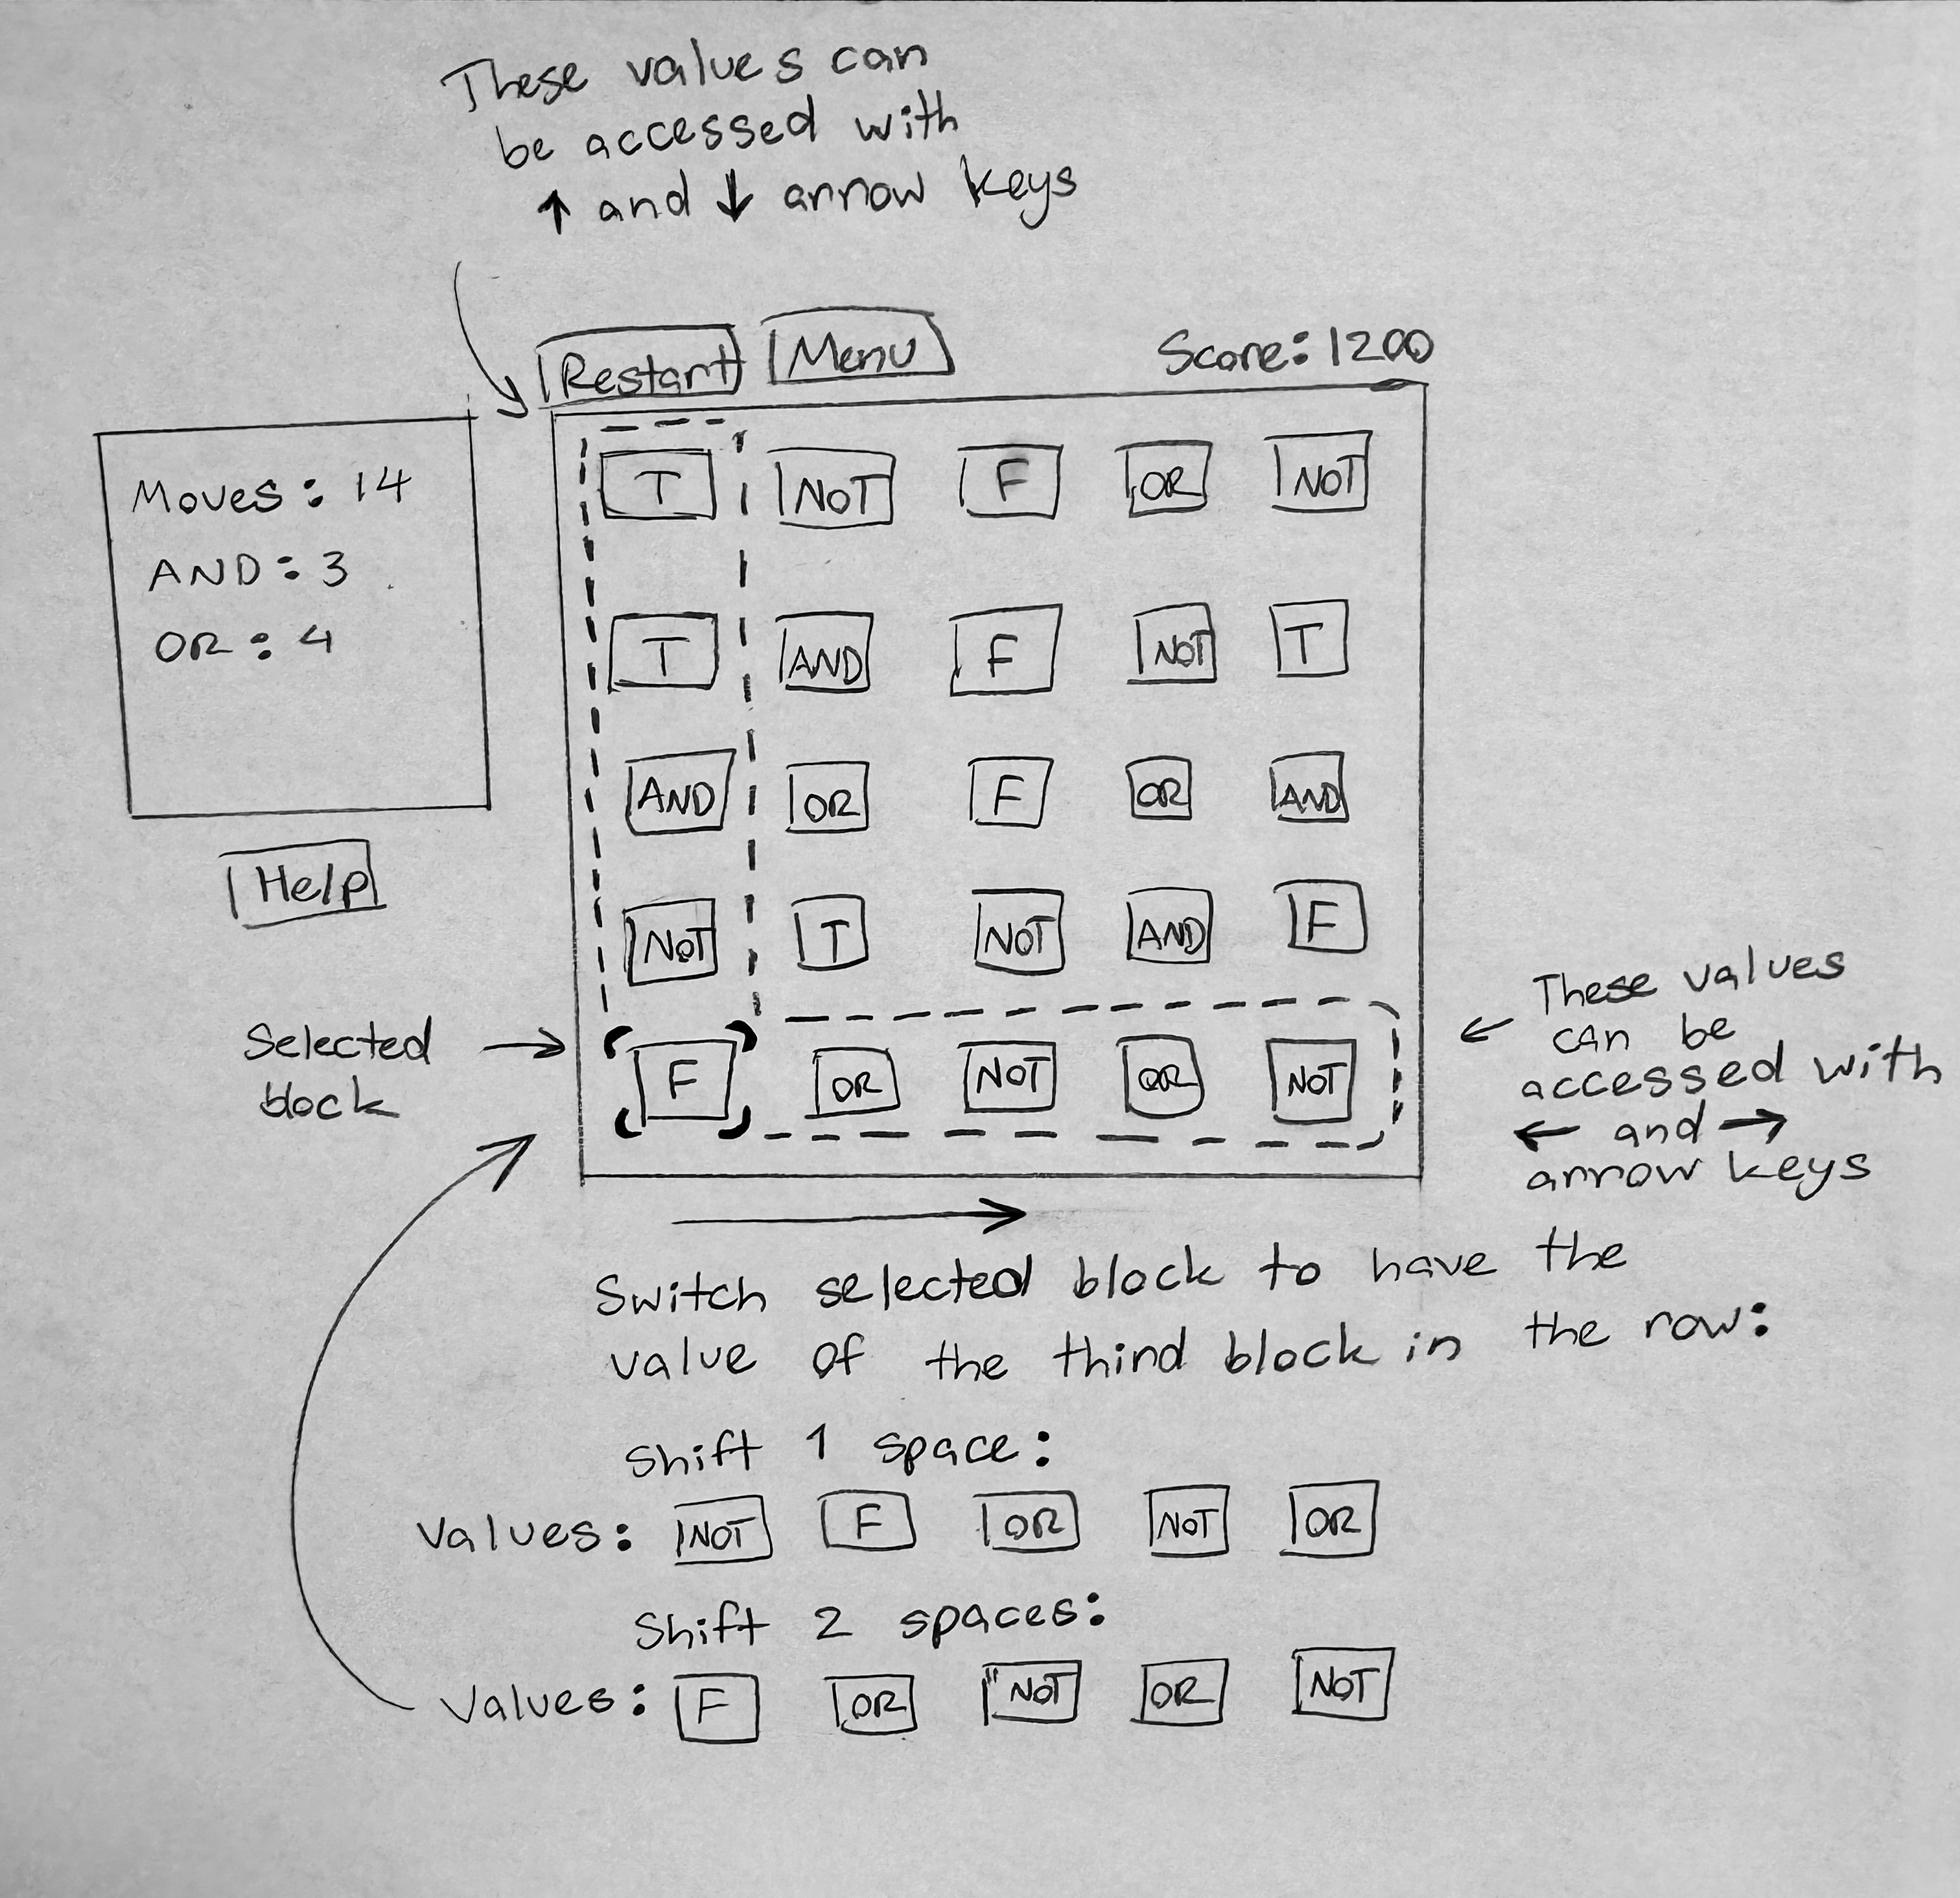 These values can
be accessed with
↑ and ↓ arrow keys
Restart Menu Score: 1200
Moves: 14
AND: 3
OR: 4
Help
T NOT F OR NOT
T AND F NOT T
AND OR F OR AND
NOT T NOT AND F
Selected
block
F OR NOT OR NOT
These values
can be
accessed with
← and →
arrow keys
Switch selected block to have the
value of the third block in the row:
Shift 1 space:
Values: NOT F OR NOT OR
Shift 2 spaces:
Values: F OR NOT OR NOT